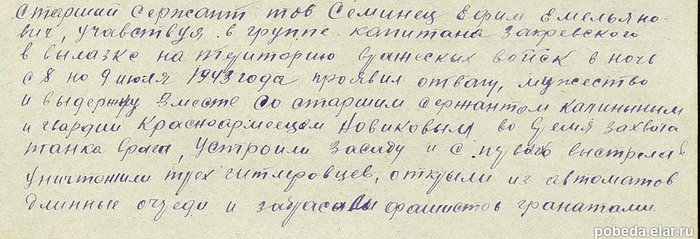 Старший сержант тов Семинец Ефим Емельяно-
вич, учавствуя в группе капитана Закревского
в вылазке на територию вражеских войск в ночь
с 8 но 9 июля 1943 года проявил отвагу, мужество
и выдержку вместе со старшим сержантом Калининим
и гвардии Красноармейцем Новиковым во время захвата
танка врага, устроили засаду и с первого выстрела
уничтожили трех гитлеровцев, открыли из автоматов
длинные очереди и забрасали фашистов гранатами.
pobeda.elar.ru